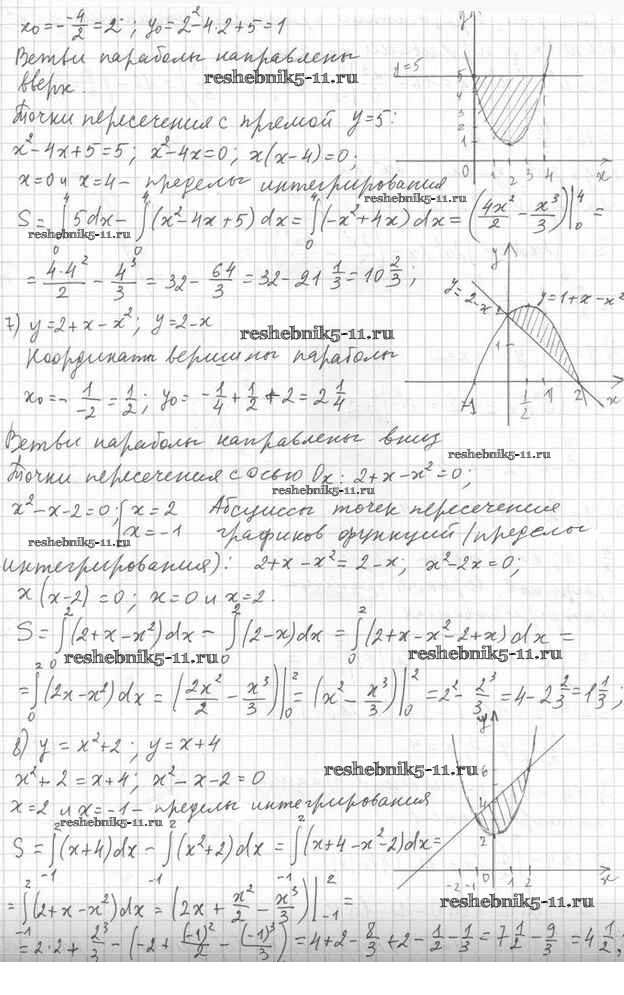 x₀ = -(-4/2) = 2; y₀ = 2² - 4·2 + 5 = 1
Ветви параболы направлены
вверх.
reshebnik5-11.ru
Точки пересечения с прямой y=5:
x² - 4x + 5 = 5; x² - 4x = 0; x(x-4) = 0;
x = 0 и x = 4 - пределы интегрирования
reshebnik5-11.ru
S = ∫₀⁴ 5dx - ∫₀⁴ (x² - 4x + 5) dx = ∫₀⁴ (-x² + 4x) dx = (4x²/2 - x³/3)|₀⁴ =
reshebnik5-11.ru
= 4·4²/2 - 4³/3 = 32 - 64/3 = 32 - 21 1/3 = 10 2/3;
y
y=5
5
4
2
1
0 1 2 3 4 x
7) y = 2 + x - x²; y = 2 - x
reshebnik5-11.ru
Координаты вершины параболы
x₀ = - 1/-2 = 1/2; y₀ = - 1/4 + 1/2 + 2 = 2 1/4
y
y = 2 - x
y = 1 + x - x²
2
1
-1 1/2 1 2 x
Ветви параболы направлены вниз
reshebnik5-11.ru
Точки пересечения с осью Ox: 2 + x - x² = 0;
reshebnik5-11.ru
x² - x - 2 = 0; [x = 2 Абсциссы точек пересечения
x = -1 графиков функций (пределы
reshebnik5-11.ru
интегрирования): 2 + x - x² = 2 - x; x² - 2x = 0;
x(x-2) = 0; x = 0 и x = 2.
S = ∫₀² (2 + x - x²) dx - ∫₀² (2 - x) dx = ∫₀² (2 + x - x² - 2 + x) dx =
reshebnik5-11.ru
reshebnik5-11.ru
= ∫₀² (2x - x²) dx = (2x²/2 - x³/3)|₀² = (x² - x³/3)|₀² = 2² - 2³/3 = 4 - 2 2/3 = 1 1/3;
8) y = x² + 2; y = x + 4
x² + 2 = x + 4; x² - x - 2 = 0
reshebnik5-11.ru
x = 2 и x = -1 - пределы интегрирования
reshebnik5-11.ru
S = ∫₋₁² (x+4) dx - ∫₋₁² (x²+2) dx = ∫₋₁² (x + 4 - x² - 2) dx =
y
6
4
2
-2 -1 1 2 x
= ∫₋₁² (2 + x - x²) dx = (2x + x²/2 - x³/3)|₋₁² =
reshebnik5-11.ru
= 2·2 + 2³/3 - (-2 + (-1)²/2 - (-1)³/3) = 4 + 2 - 8/3 + 2 - 1/2 - 1/3 = 7 1/2 - 9/3 = 4 1/2;